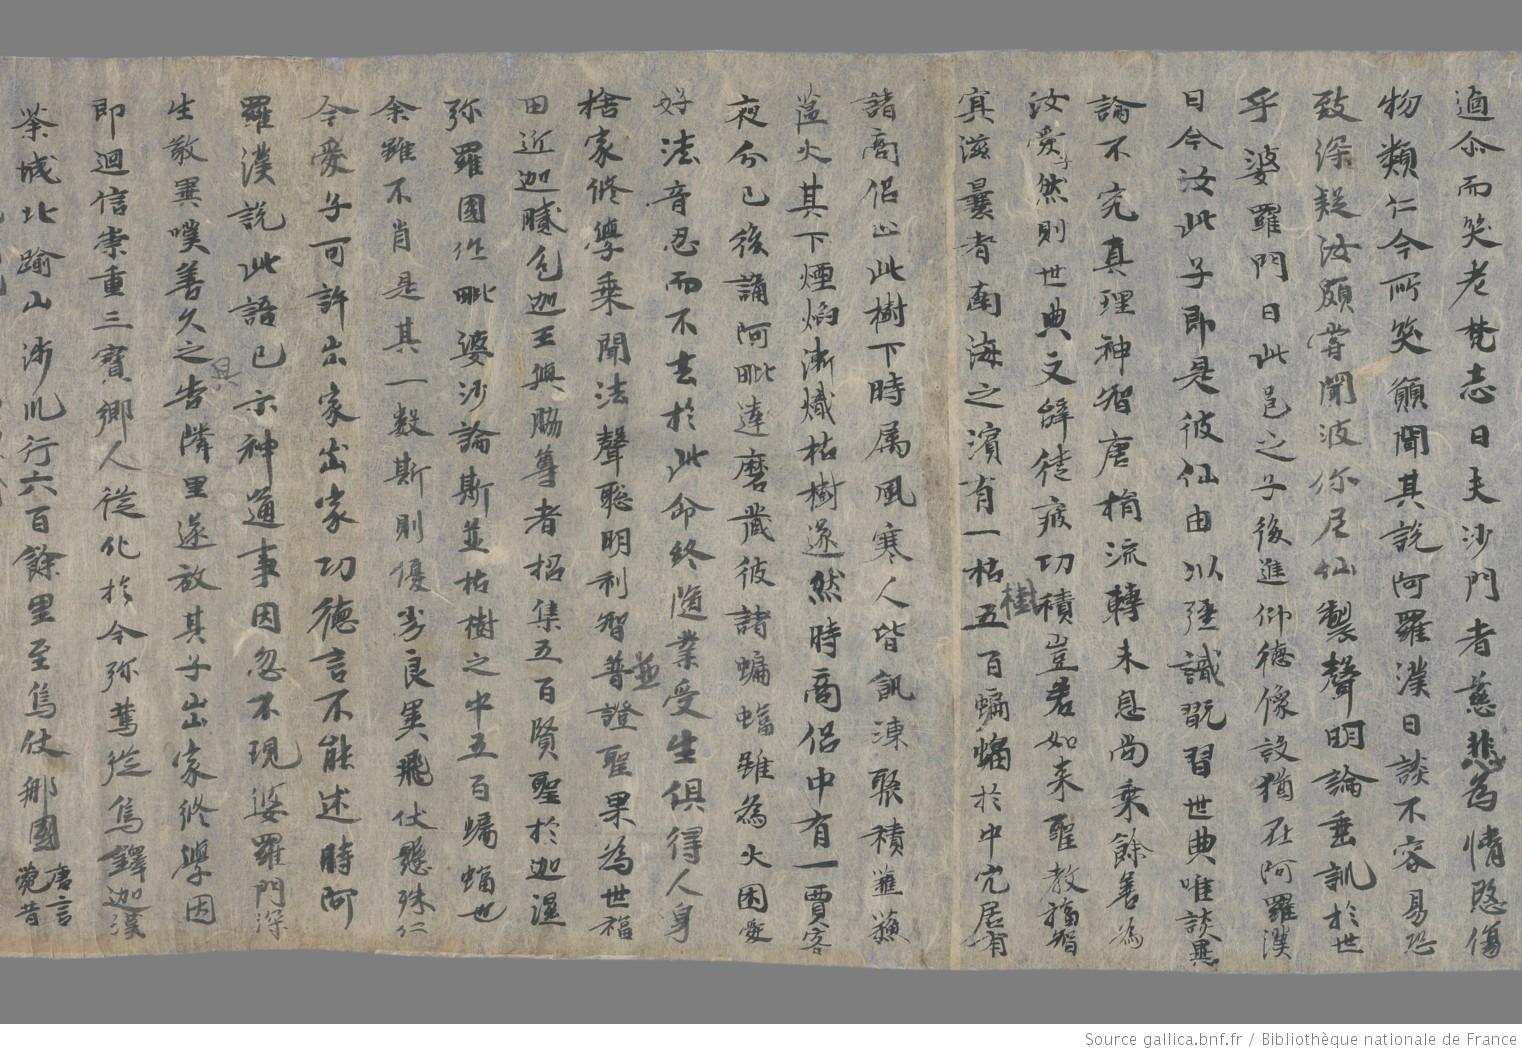 逌尒而笑老梵志曰夫沙門者慈悲為情愍傷
物類仁今所笑願聞其說阿羅漢曰談不容易恐
致深疑汝頗嘗聞波你尼仙製聲明論垂訓於世
乎婆羅門曰此邑之子後進仰德像設猶在阿羅漢
曰今汝此子即是彼仙由以強識翫習世典唯談異
論不究真理神智唐捐流轉未息尚乘餘善為
汝愛子然則世典文辭徒疲功積豈若如来聖教福智
冥滋曩者南海之濱有一枯樹五百蝙蝠於中穴居有
諸商侶止此樹下時属風寒人皆飢凍聚積樵蘇
薀火其下煙焰漸熾枯樹遂然時商侶中有一賈客
夜分已後誦阿毗達磨藏彼諸蝙蝠雖為火困愛
好法音忍而不去於此命終隨業受生俱得人身
捨家修學乘聞法聲聡明利智普並證聖果為世福
田近迦膩色迦王與脇尊者招集五百賢聖於迦濕
弥羅國作毗婆沙論斯並枯樹之中五百蝙蝠也
余雖不肖是其一數斯則優劣良異飛伏懸殊仁
今愛子可許出家出家功德言不能述時阿
羅漢說此語已示神通事因忽不現婆羅門深
生敬異嘆善久之具告隣里遂放其子出家修學因
即迴信崇重三寳鄉人從化於今弥篤從烏鐸迦漢
荼城北踰山涉川行六百餘里至烏仗那國唐言
菀昔